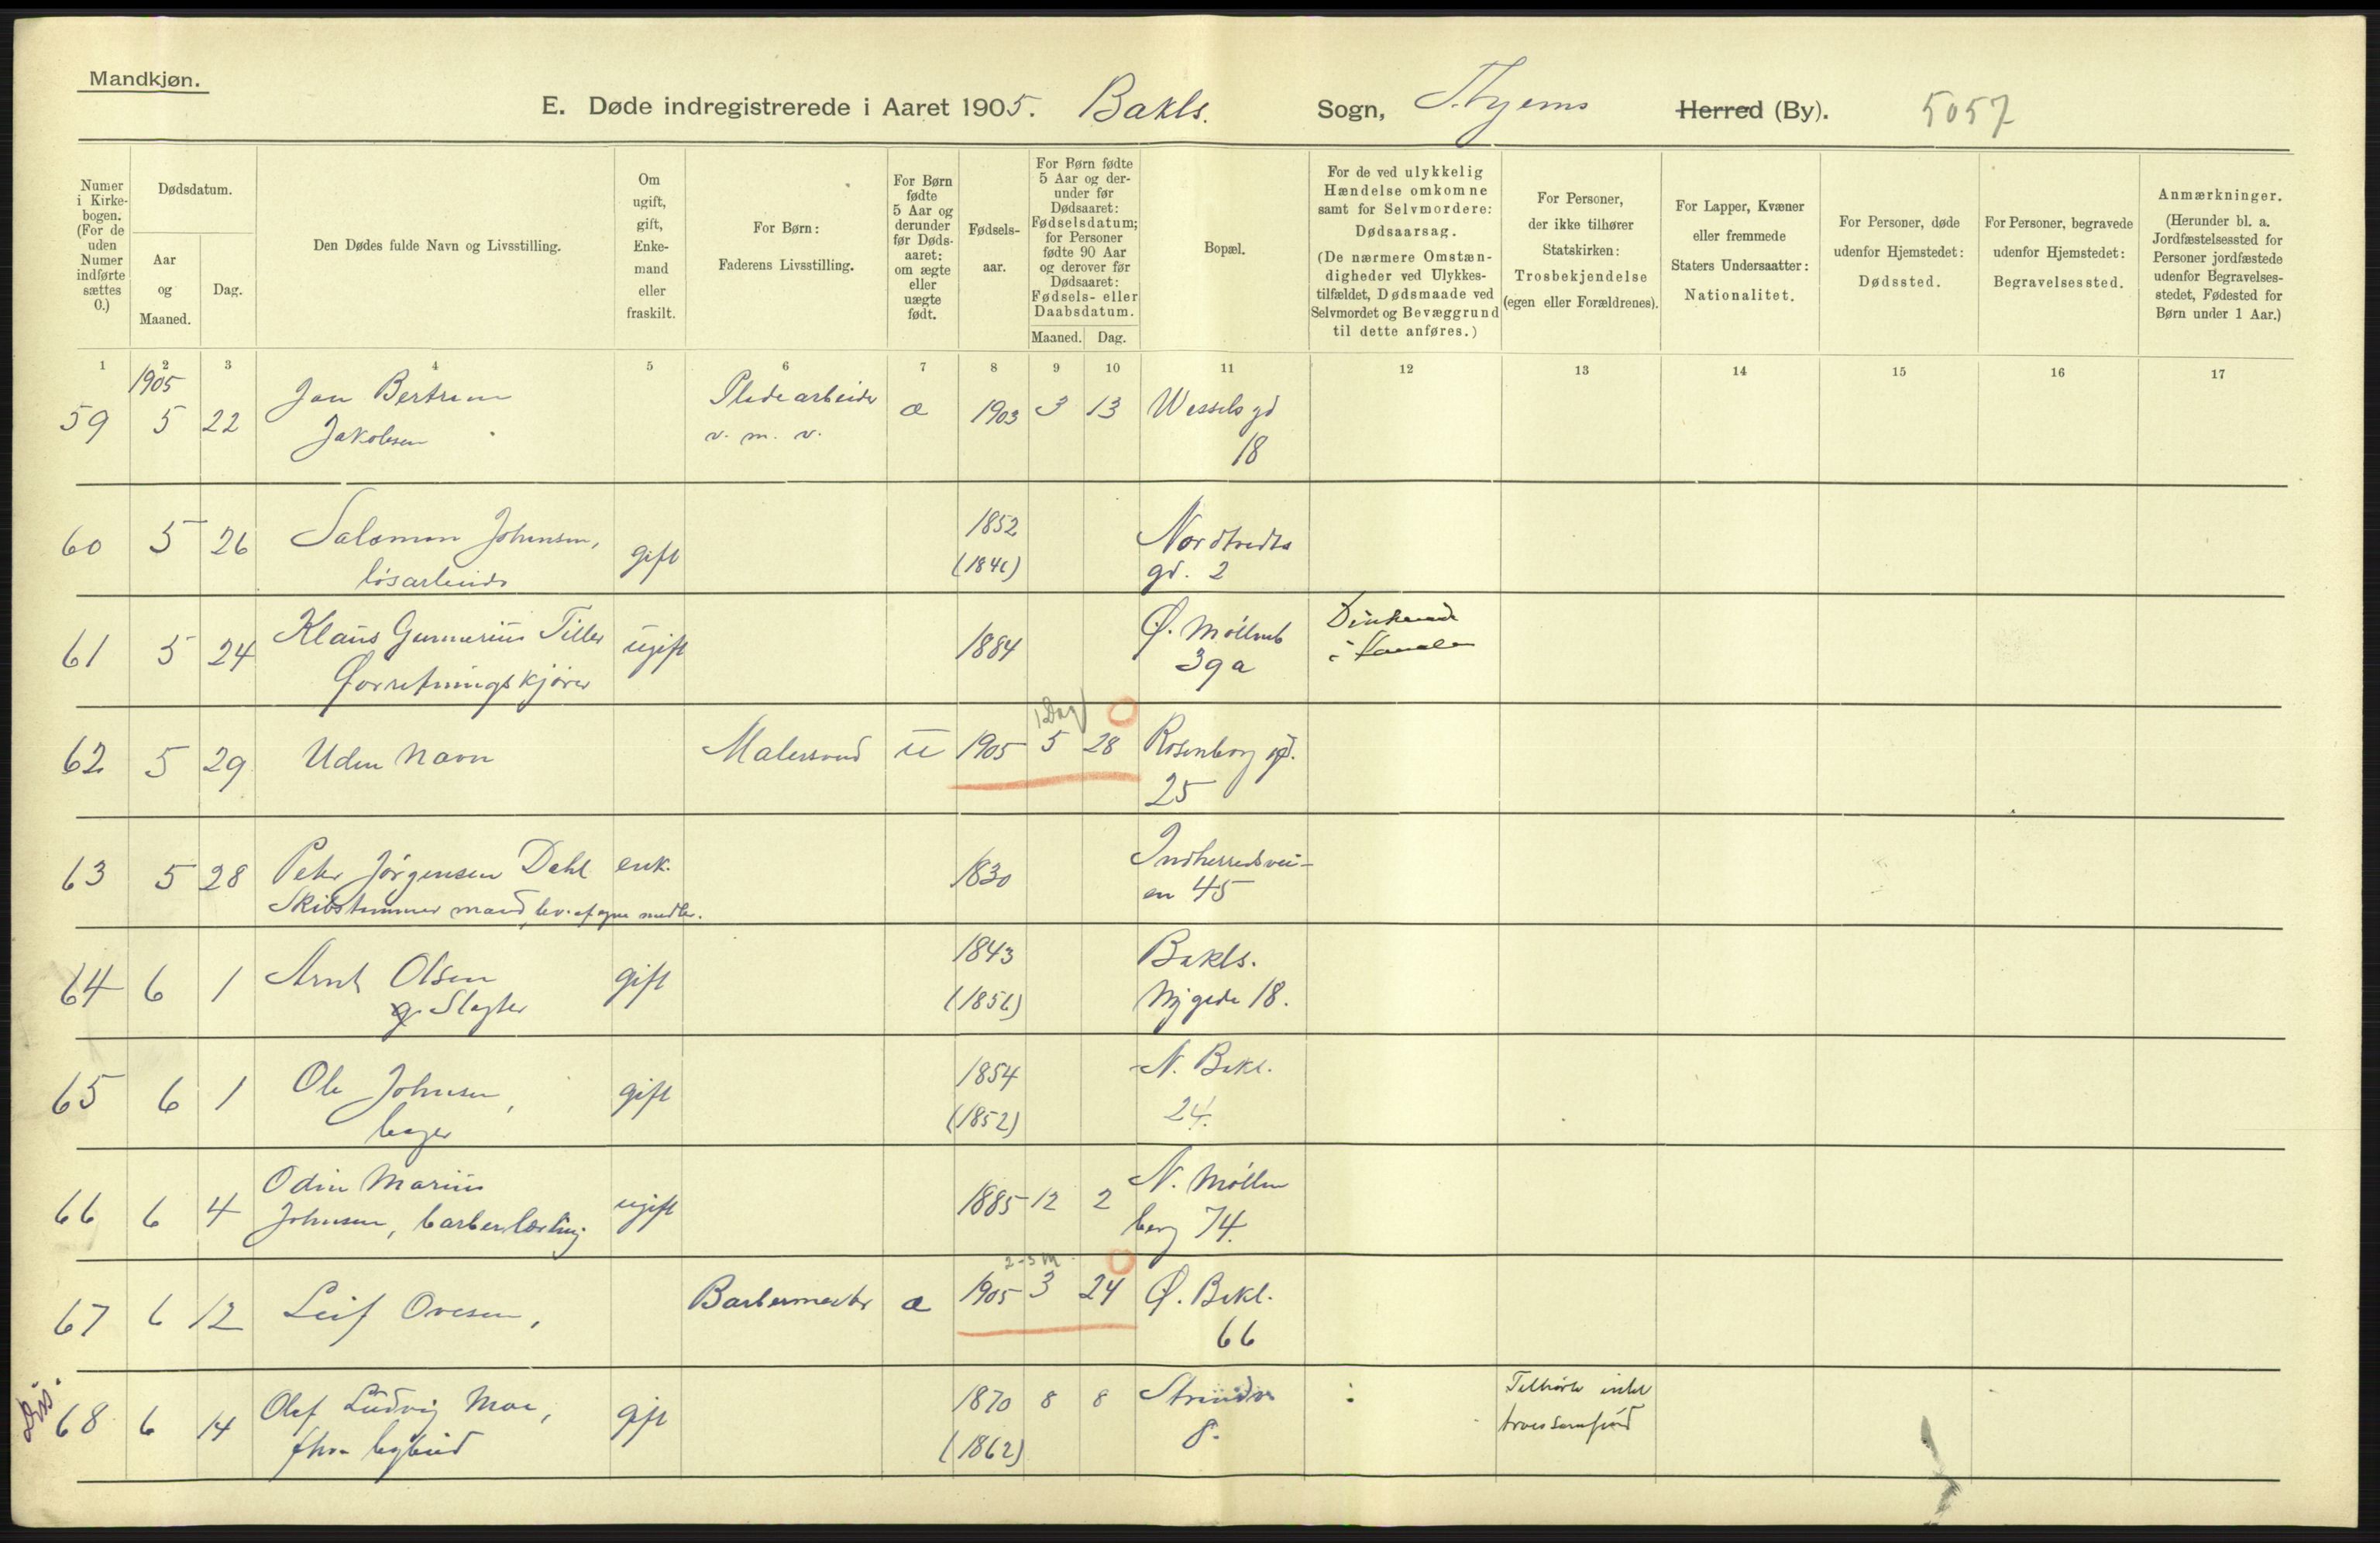 Mandkjøn.
E. Døde indregistrerede i Aaret 1905. Bakls. Sogn, Thjems Herred (By). 5057
Numer i Kirke-bogen. (For de uden Numer indførte sættes 0.)
Dødsdatum.
Aar og Maaned.
Dag.
Den Dødes fulde Navn og Livsstilling.
Om ugift, gift, Enke-mand eller fraskilt.
For Børn: Faderens Livsstilling.
For Børn fødte 5 Aar og derunder før Døds-aaret: om ægte eller uægte født.
Fødsels-aar.
For Børn fødte 5 Aar og der-under før Dødsaaret: Fødselsdatum; for Personer fødte 90 Aar og derover før Dødsaaret: Fødsels- eller Daabsdatum.
Maaned. Dag.
Bopæl.
For de ved ulykkelig Hændelse omkomne samt for Selvmordere: Dødsaarsag. (De nærmere Omstæn-digheder ved Ulykkes-tilfældet, Dødsmaade ved Selvmordet og Bevæggrund til dette anføres.)
For Personer, der ikke tilhører Statskirken: Trosbekjendelse (egen eller Forældrenes).
For Lapper, Kvæner eller fremmede Staters Undersaatter: Nationalitet.
For Personer, døde udenfor Hjemstedet: Dødssted.
For Personer, begravede udenfor Hjemstedet: Begravelsessted.
Anmærkninger. (Herunder bl. a. Jordfæstelsessted for Personer jordfæstede udenfor Begravelses-stedet, Fødested for Børn under 1 Aar.)
1 2 3 4 5 6 7 8 9 10 11 12 13 14 15 16 17
1905
59 5 22 Jon Bertram Pladearbeider æ 1903 3 13 Wessels gd
Jakobsen v. m. v. 18
60 5 26 Salomon Johnsen, gift 1852 Nordtvedts
løsarbeider (1846) gd. 2
61 5 24 Klaus Gunnerius Tiller ugift 1884 Ø. Møllenb Druknede
Forretningskjører 39a i Kanalen
1 Dag
62 5 29 Uden navn Malersvend u 1905 5 28 Rosenborg gd.
25
63 5 28 Peter Jørgensen Dahl enk. 1830 Indherredsvei-
Skibstømmermand, lev. af egne midler. en 45
64 6 1 Arnt Olsen gift 1843 Bakls.
Slagter (1856) Nygade 18.
65 6 1 Ole Johnsen, gift 1854 N. Bakl.
bager (1852) 24.
66 6 4 Odin Marius ugift 1885 12 2 N. Møllen
Johnsen, barberlærling berg 74.
2-3 M
67 6 12 Leif Ovesen, Barbermester æ 1905 3 24 Ø. Bakl.
66
Dis.
68 6 14 Olef Ludvig Moe, gift 1870 8 8 Strindv Tilhørte intet
bybud (1862) 8. troessamfund